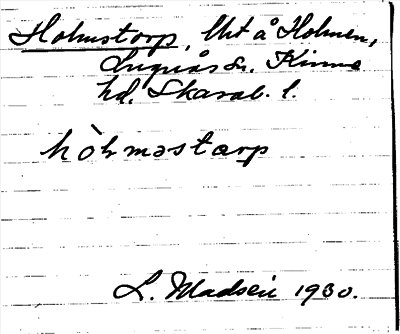 Holmstorp, Uht å Holmen,
Lugnås sn. Kinne
hd. Skarab. l.
hòlməstarp
L. Madsén 1930.